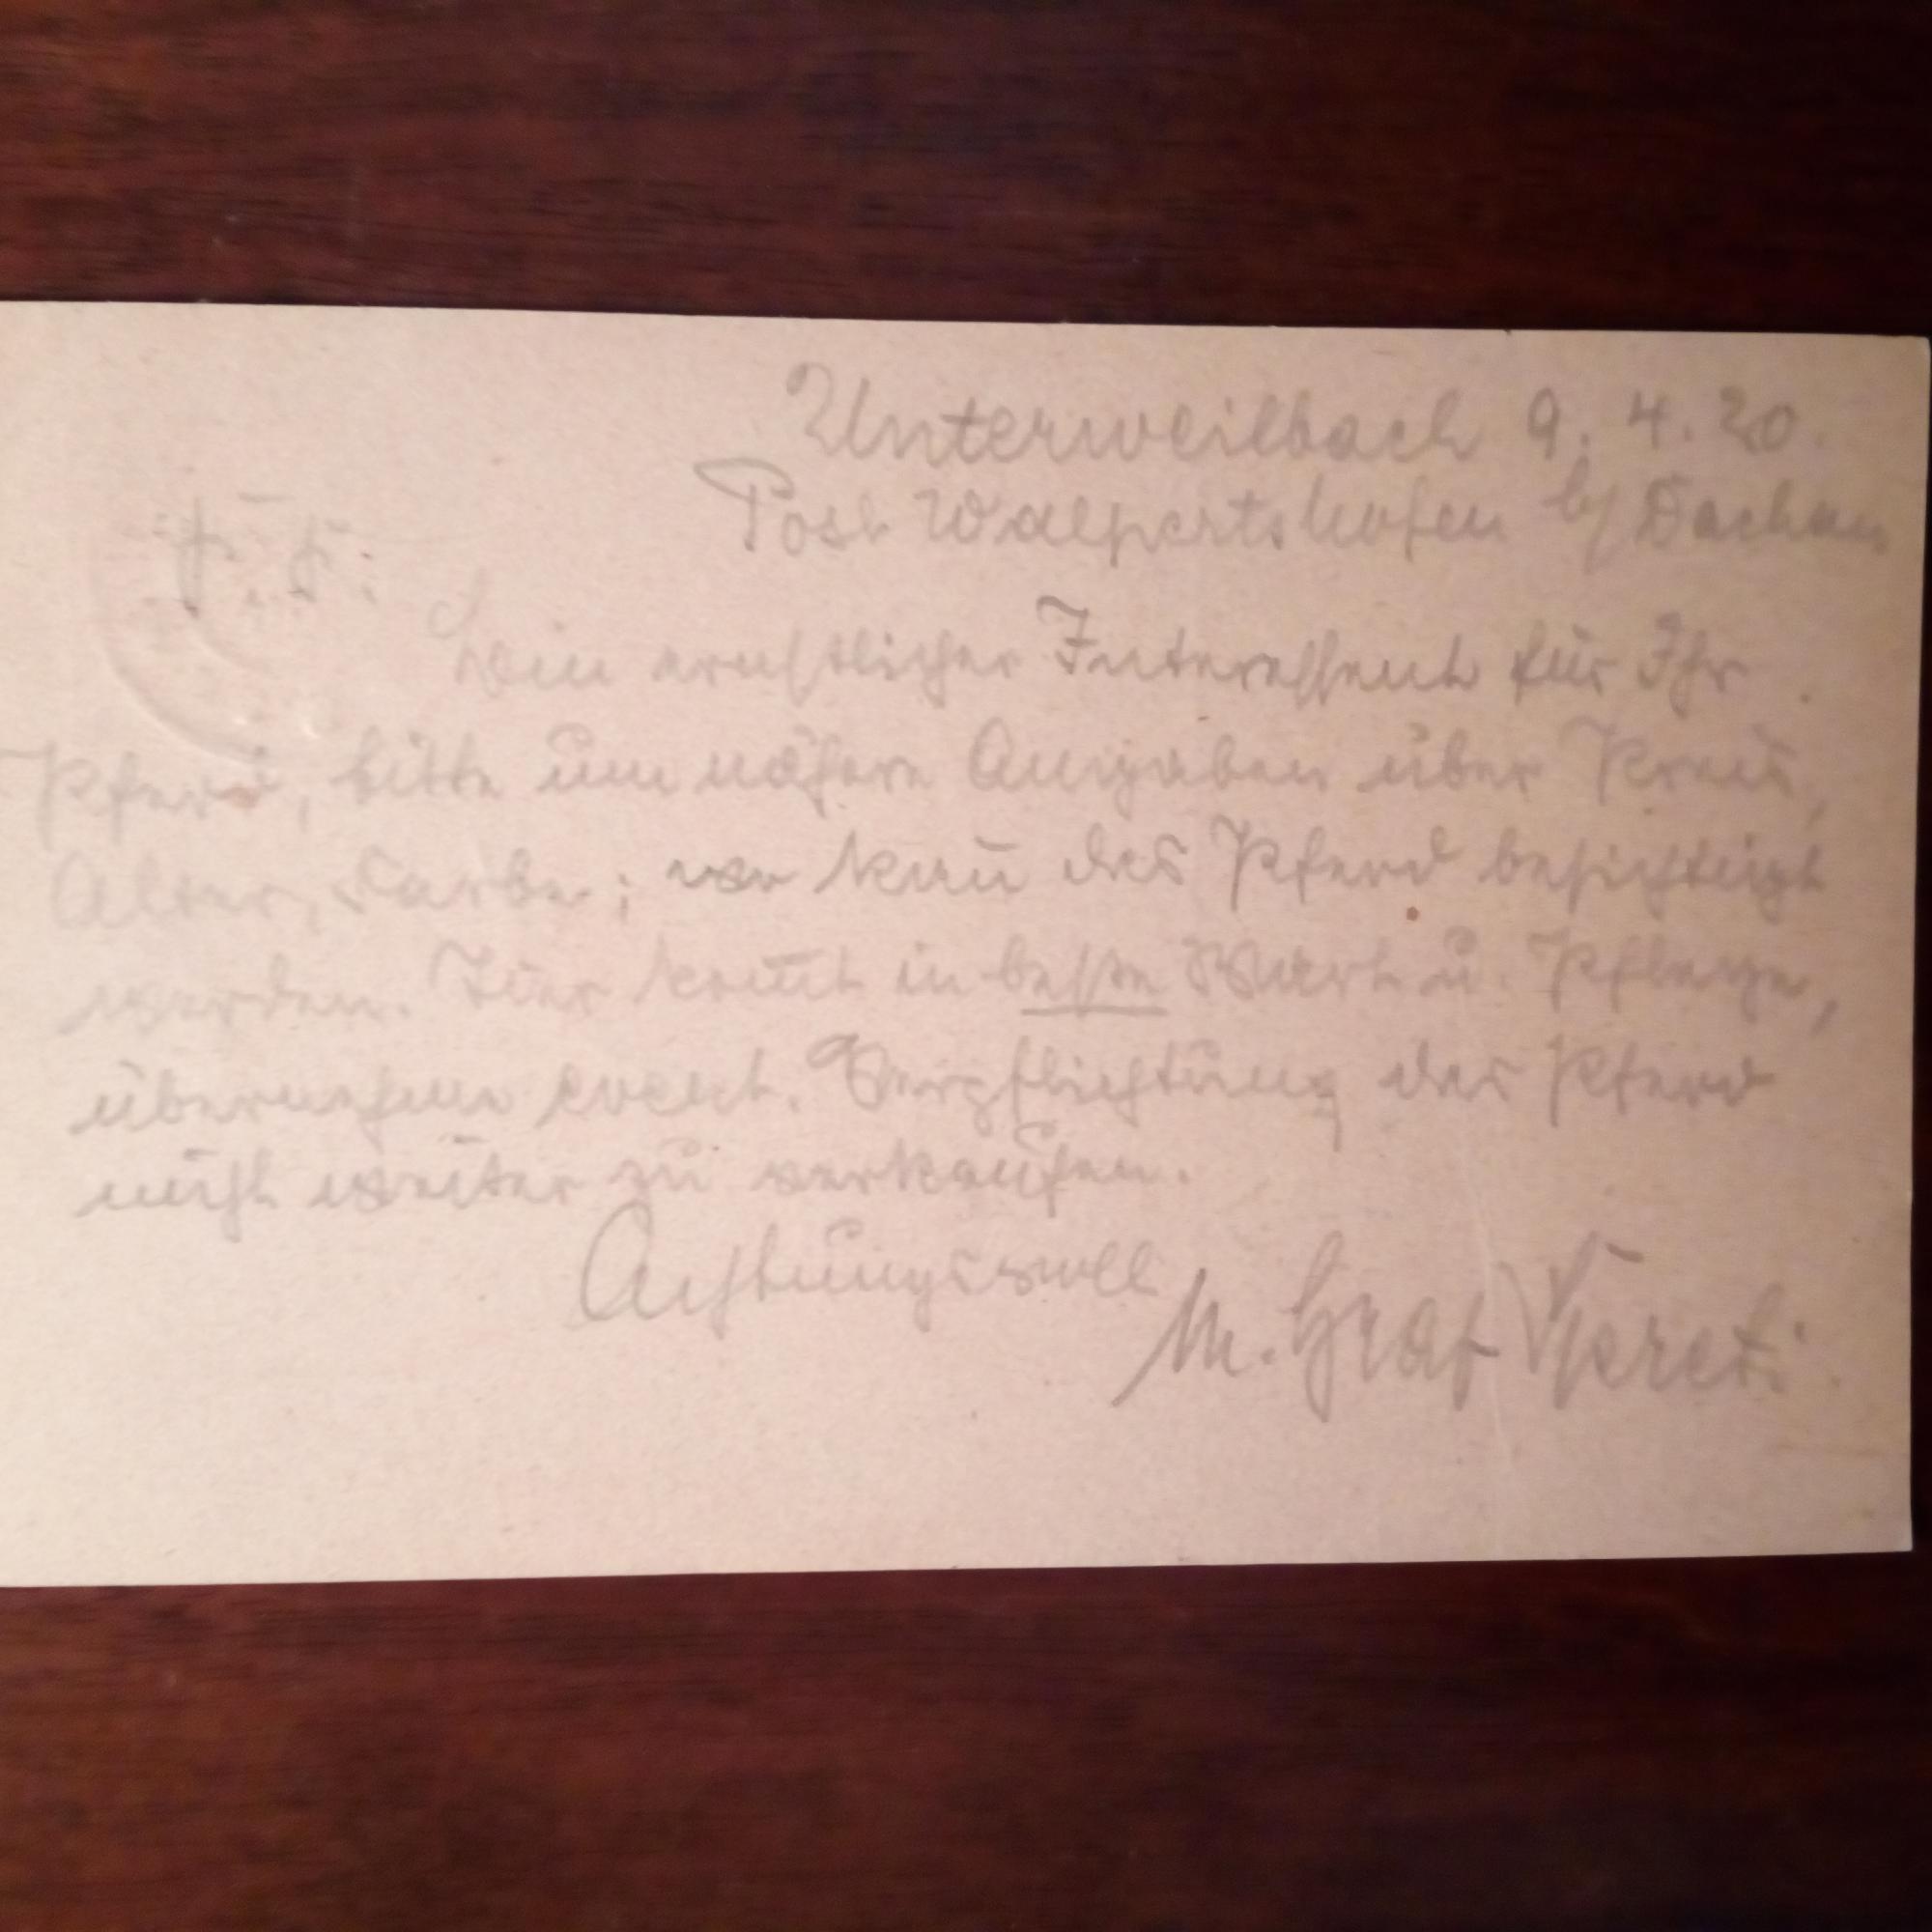 Unterweilbach 9. 4. 20.
Post Walpertshofen b/ Dachau
P. T.
Bin ernstlicher Interessent für Ihr
Pferd, bitte um nähere Angaben über Preis,
Alter, Farbe; wo kann das Pferd besichtigt
werden. Tier kommt in beste Wart u. Pflege,
übernehme event. Verpflichtung das Pferd
nicht weiter zu verkaufen.
Achtungsvoll
M. Graf Spreti